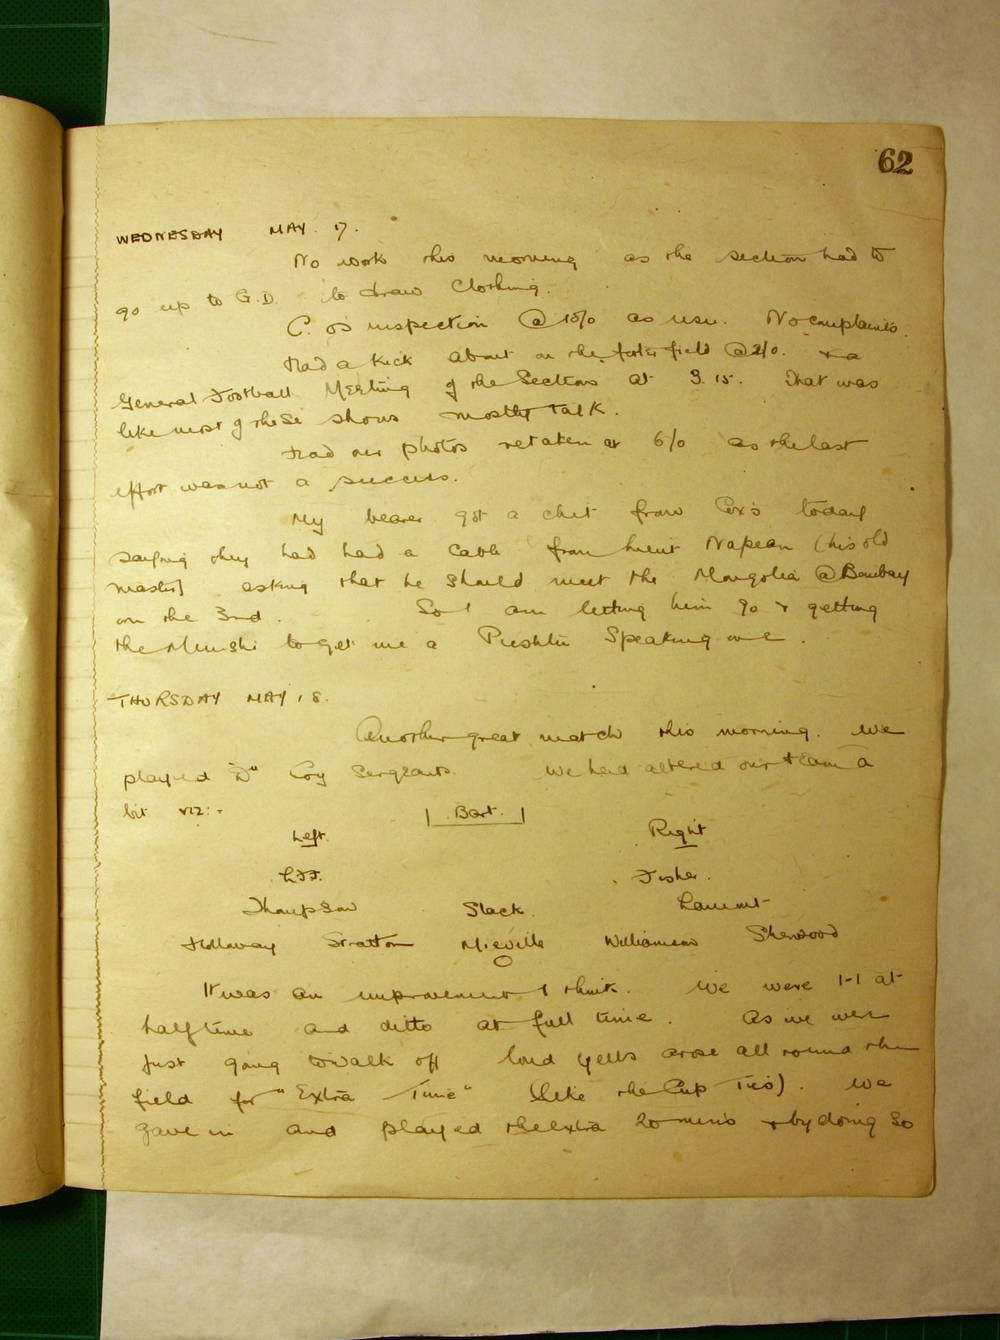 62
WEDNESDAY MAY. 17.
No work this morning as the section had to
go up to G.D. to draw clothing.
C. O's inspection @ 10/0 as usu. No complaints.
Had a kick about on the footer field @ 2/0. & a
General Football Meeting of the Sections at 3.15. That was
like most of these shows mostly talk.
Had our photos retaken at 6/0 as the last
effort was not a success.
My bearer got a chit from Cox's today
saying they had had a cable from Lieut Napean (his old
master) asking that he should meet the Mongolia @ Bombay
on the 3rd. So I am letting him go & getting
the Munshi to get me a Pushtu Speaking one.
THURSDAY MAY 18.
Another great match this morning. We
played "D" Coy Sergeants. We had altered our team a
bit viz:-
| Bart. |
Left. Right
Fisher.
Thompson Slack. Lamont
Holloway Stratton Mieville Williamson Sherwood
O
It was an improvement I think. We were 1-1 at
half time and ditto at full time. As we were
just going to walk off loud yells arose all round the
field for "Extra Time" (like the Cup Ties). We
gave in and played the extra 20 mins & by doing so